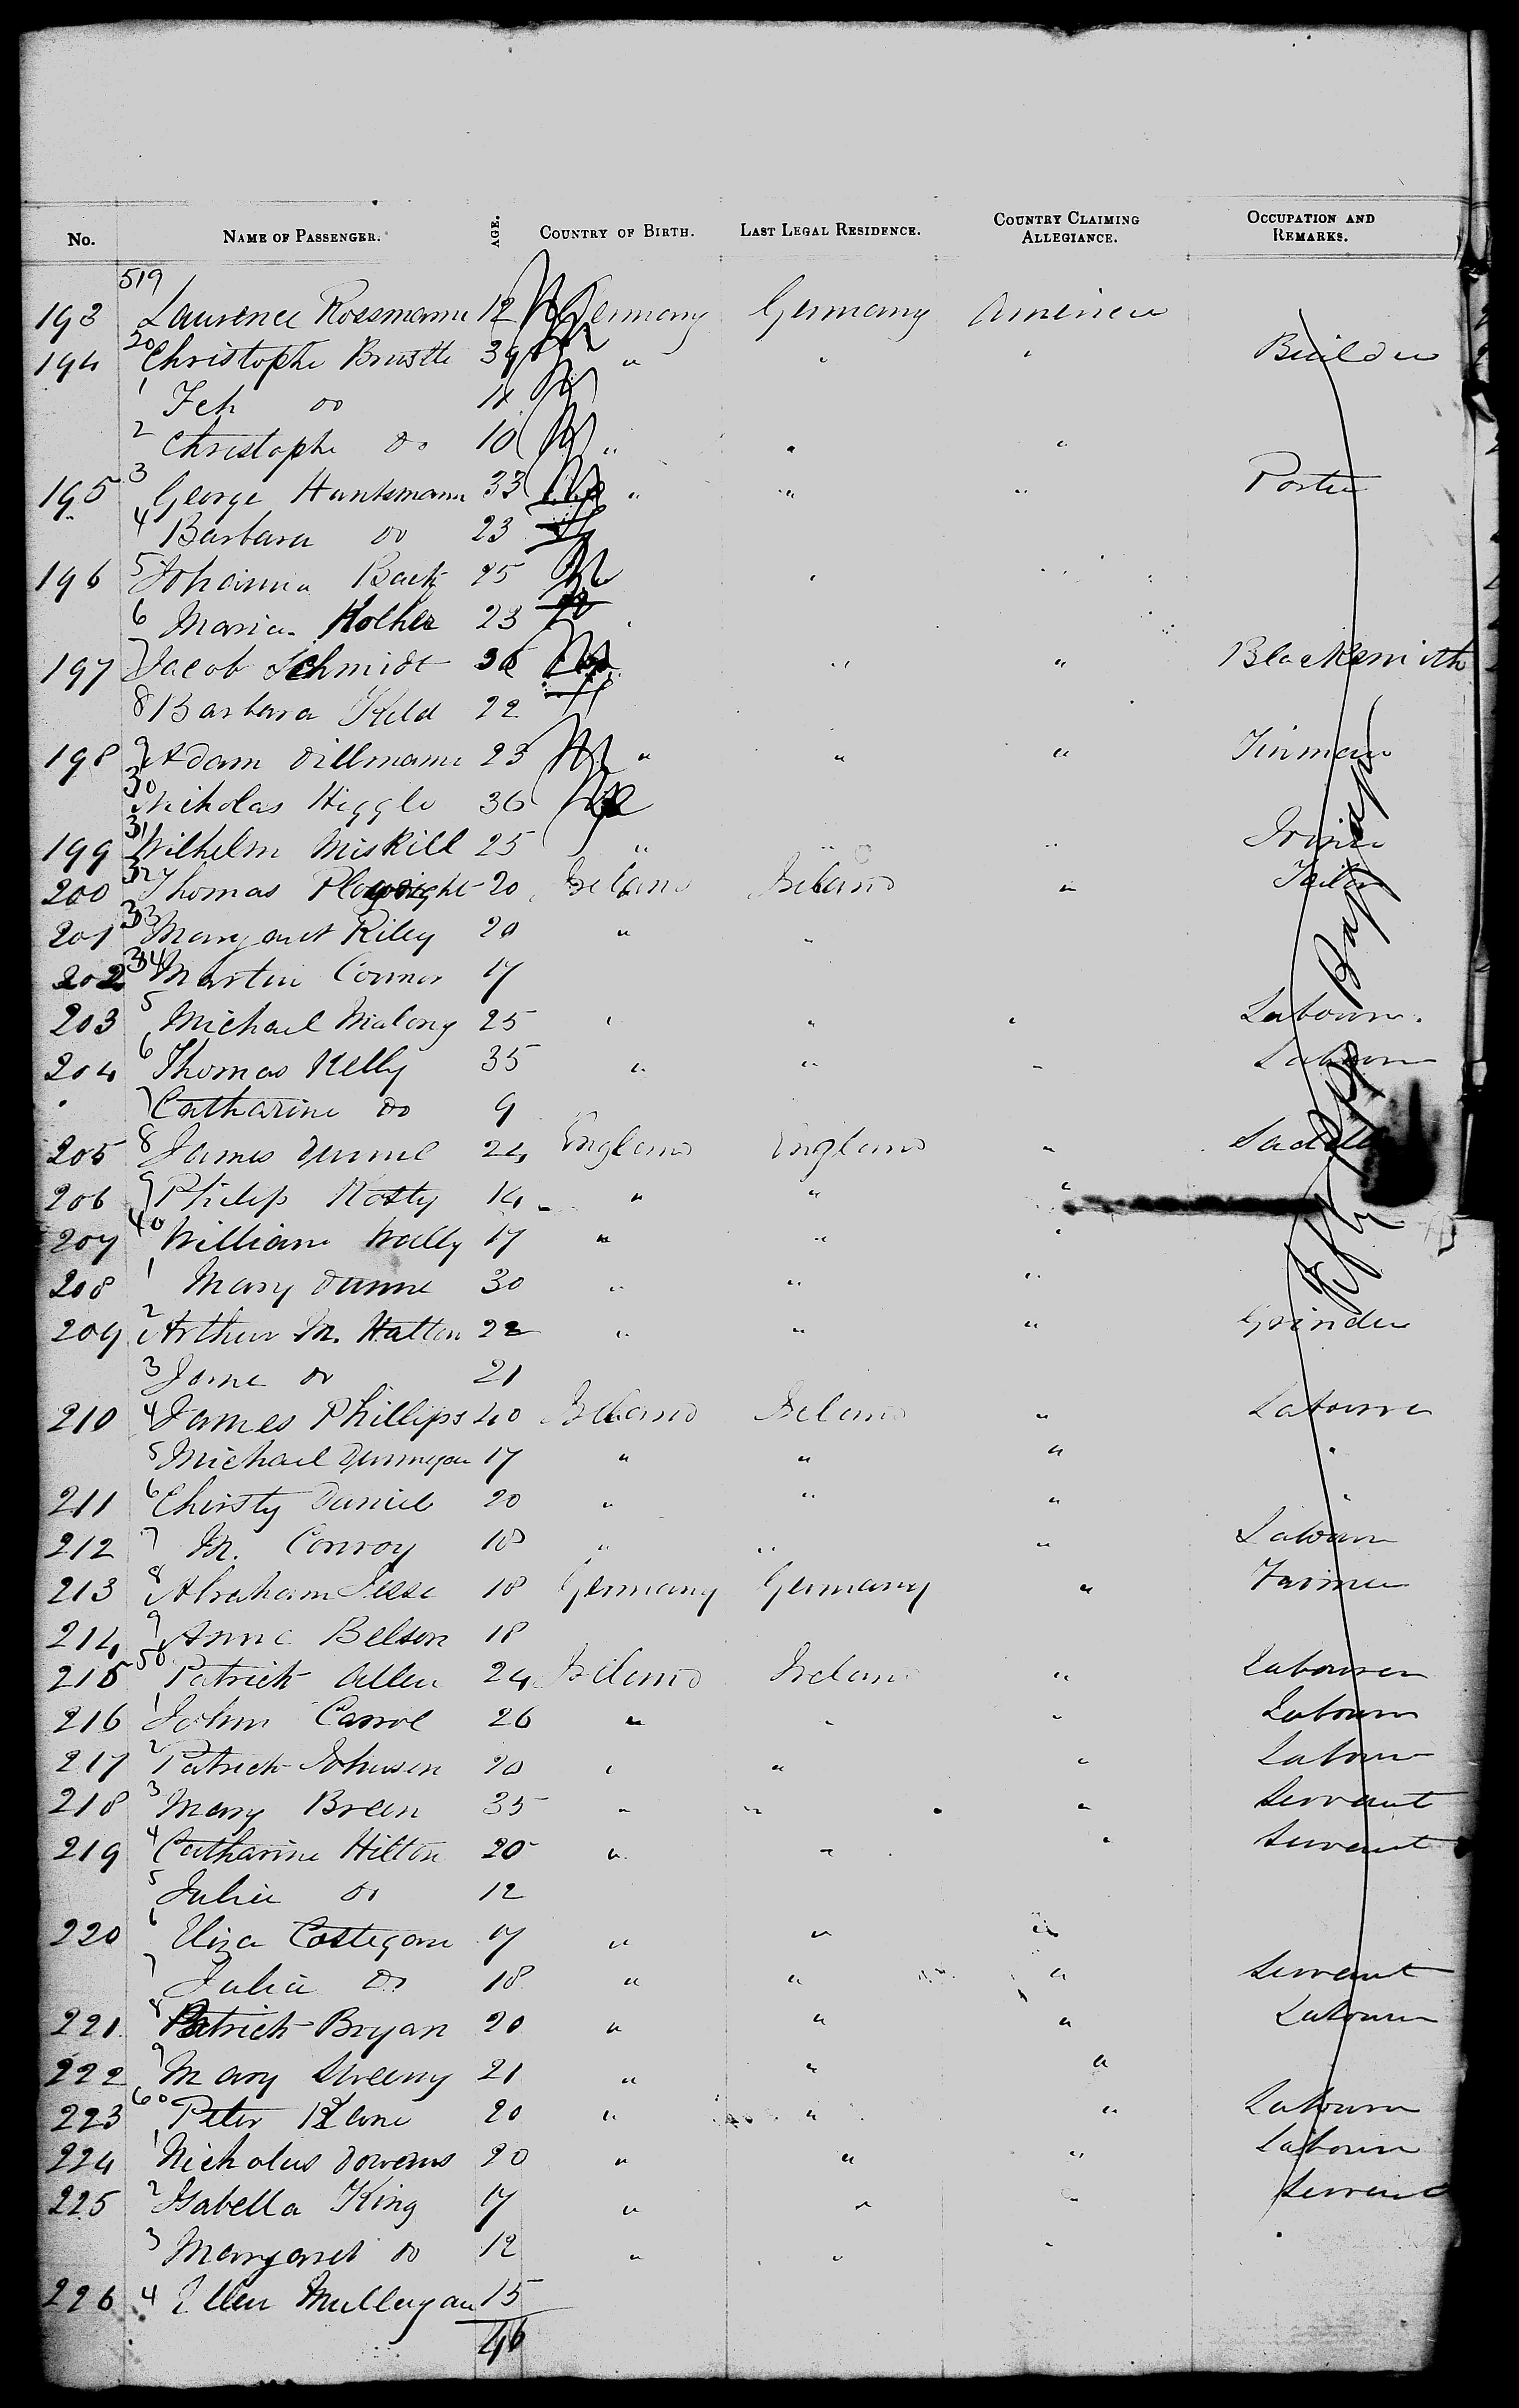 No. NAME OF PASSENGER. AGE. COUNTRY OF BIRTH. LAST LEGAL RESIDENCE. COUNTRY CLAIMING ALLEGIANCE. OCCUPATION AND REMARKS.
519
193 Laurence Rossmann 12 Germany Germany America
194 20 Christophe Brustle 39 " " " Builder
1 Feh do 11
2 Christophe Do 10 " " "
195 3 George Huntsmann 33 " " " Porter
4 Barbara do 23
196 5 Johanna Back 25 "
6 Maria 23
197 7 Jacob Schmidt 36 " " Blacksmith
8 Barbara Held 22
198 9 Adam Dillmann 23 " " " Tinman
30 Nicholas Higgle 36
199 31 Wilhelm Miskill 25 " " "
200 32 Thomas Plowright 20 Ireland Ireland " Tailor
201 33 Margaret Riley 20 " "
202 34 Martin Connor 17
203 5 Michael Malony 25 " " " Labourer
204 6 Thomas Kelly 35 " " " Labourer
7 Catharine do 9
205 8 James Dunne 24 England England " Saddler
206 9 Philip 14 " " "
207 40 William Wally 17 " " "
208 1 Mary Dunne 30 " " "
209 2 Arthur M. Hatton 22 " " " Grinder
3 Jane do 21
210 4 James Phillips 40 Ireland Ireland " Labourer
5 Michael 17 " " " "
211 6 Christy Daniel 20 " " " "
212 7 M. Conroy 18 " " " Labourer
213 8 Abraham Jesse 18 Germany Germany " Farmer
214 9 Anne Belson 18
215 50 Patrick Allen 24 Ireland Ireland " Labourer
216 1 John Carrol 26 " " " Labourer
217 2 Patrick Johnson 20 " " " Labourer
218 3 Mary Breen 35 " " " Servant
219 4 Catharine Hilton 20 " " " Servant
5 Julia do 12
220 6 Eliza Costegan 17 " " "
7 Julia Do 18 " " " Servant
221 8 Patrick Bryan 20 " " " Labourer
222 9 Mary Sweeny 21 " " "
223 60 Peter Kane 20 " " " Labourer
224 1 Nicholas Dowens 20 " " " Labourer
225 2 Isabella King 17 " " " Servant
3 Margaret do 12 " " "
226 4 Ellen Mulleyan 15
46